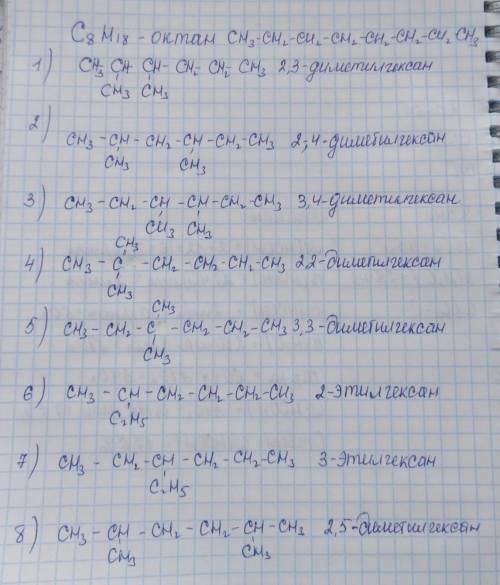 C8H18 - октан CH3-CH2-CH2-CH2-CH2-CH2-CH2-CH3
1) CH3-CH-CH-CH2-CH2-CH3 2,3-диметилгексан
CH3 CH3
2) CH3-CH-CH2-CH-CH2-CH3 2,4-диметилгексан
CH3 CH3
3) CH3-CH2-CH-CH-CH2-CH3 3,4-диметилгексан
CH3 CH3
CH3
4) CH3-C-CH2-CH2-CH2-CH3 2,2-диметилгексан
CH3
CH3
5) CH3-CH2-C-CH2-CH2-CH3 3,3-диметилгексан
CH3
6) CH3-CH-CH2-CH2-CH2-CH3 2-этилгексан
C2H5
7) CH3-CH2-CH-CH2-CH2-CH3 3-этилгексан
C2H5
8) CH3-CH-CH2-CH2-CH-CH3 2,5-диметилгексан
CH3 CH3